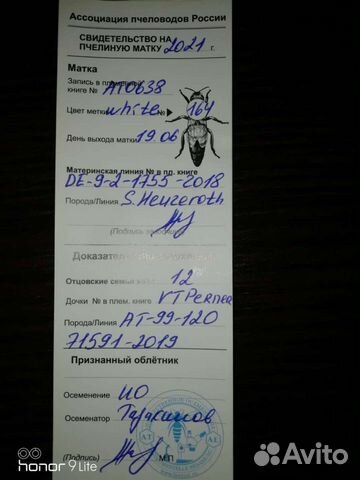 Ассоциация пчеловодов России
СВИДЕТЕЛЬСТВО НА
ПЧЕЛИНУЮ МАТКУ 2021 г.
Матка
Запись в племенной
книге № АТ0638
Цвет метки white № 164
День выхода матки 19.06
Материнская линия № в пл. книге
DE-9-2-1755-2018
Порода/Линия S.Heuzeroth
(Подпись
Отцовские семьи 12
Дочки № в плем. книге VTPerner
Порода/Линия AT-99-120
71591-2019
Признанный облётник
Осеменение ИО
Осеменатор
(Подпись) М.П.
honor 9 Lite
Avito